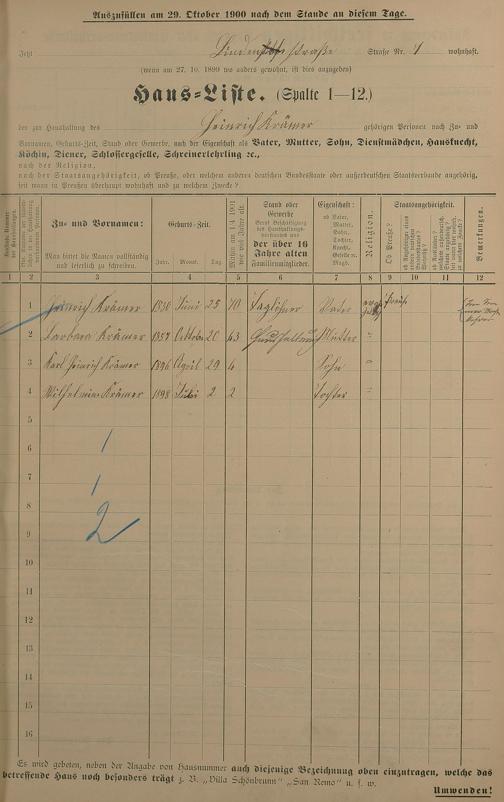 Auszufüllen am 29. Oktober 1900 nach dem Stande an diesem Tage.
Jetzt Lindenstraße Straße Nr. 1 wohnhaft.
(wenn am 27. 10. 1899 wo anders gewohnt, ist dies anzugeben)
Haus-Liste. (Spalte 1—12.)
der zur Haushaltung des Heinrich Krämer gehörigen Personen nach Zu- und
Vornamen, Geburts-Zeit, Stand oder Gewerbe, nach der Eigenschaft als Vater, Mutter, Sohn, Dienstmädchen, Hausknecht,
Köchin, Diener, Schlossergeselle, Schreinerlehrling ec.,
nach der Religion,
nach der Staatsangehörigkeit, ob Preuße, oder welchem anderen deutschen Bundesstaate oder außerdeutschen Staatsverbande angehörig,
seit wann in Preußen überhaupt wohnhaft und zu welchem Zwecke?
Zu- und Vornamen:
Man bittet die Namen vollständig
und leserlich zu schreiben.
Geburts-Zeit.
Jahr. Monat. Tag.
Stand oder
Gewerbe
der über 16
Jahre alten
Familienmitglieder.
Eigenschaft:
ob Vater,
Mutter,
Sohn,
Tochter,
Knecht,
Geselle o.
Magd.
Religion.
Staatsangehörigkeit.
Ob Preuße?
Bemerkungen.
1 2 3 4 5 6 7 8 9 10 11 12
1 Heinrich Krämer 1830 Juni 25 70 Taglöhner Vater
2 Barbara Krämer 1857 October 20 43 Haushaltung Mutter "
3 Karl Heinrich Krämer 1896 April 29 4 Sohn "
4 Wilhelmine Krämer 1898 Juli 2 2 Tochter "
5
6
7
8
9
10
11
12
13
14
15
16
1
1
2
Es wird gebeten, neben der Angabe von Hausnummer auch diejenige Bezeichnung oben einzutragen, welche das
betreffende Haus noch besonders trägt z. B. „Villa Schönbrunn" „San Remo" u. s. w.
Umwenden!